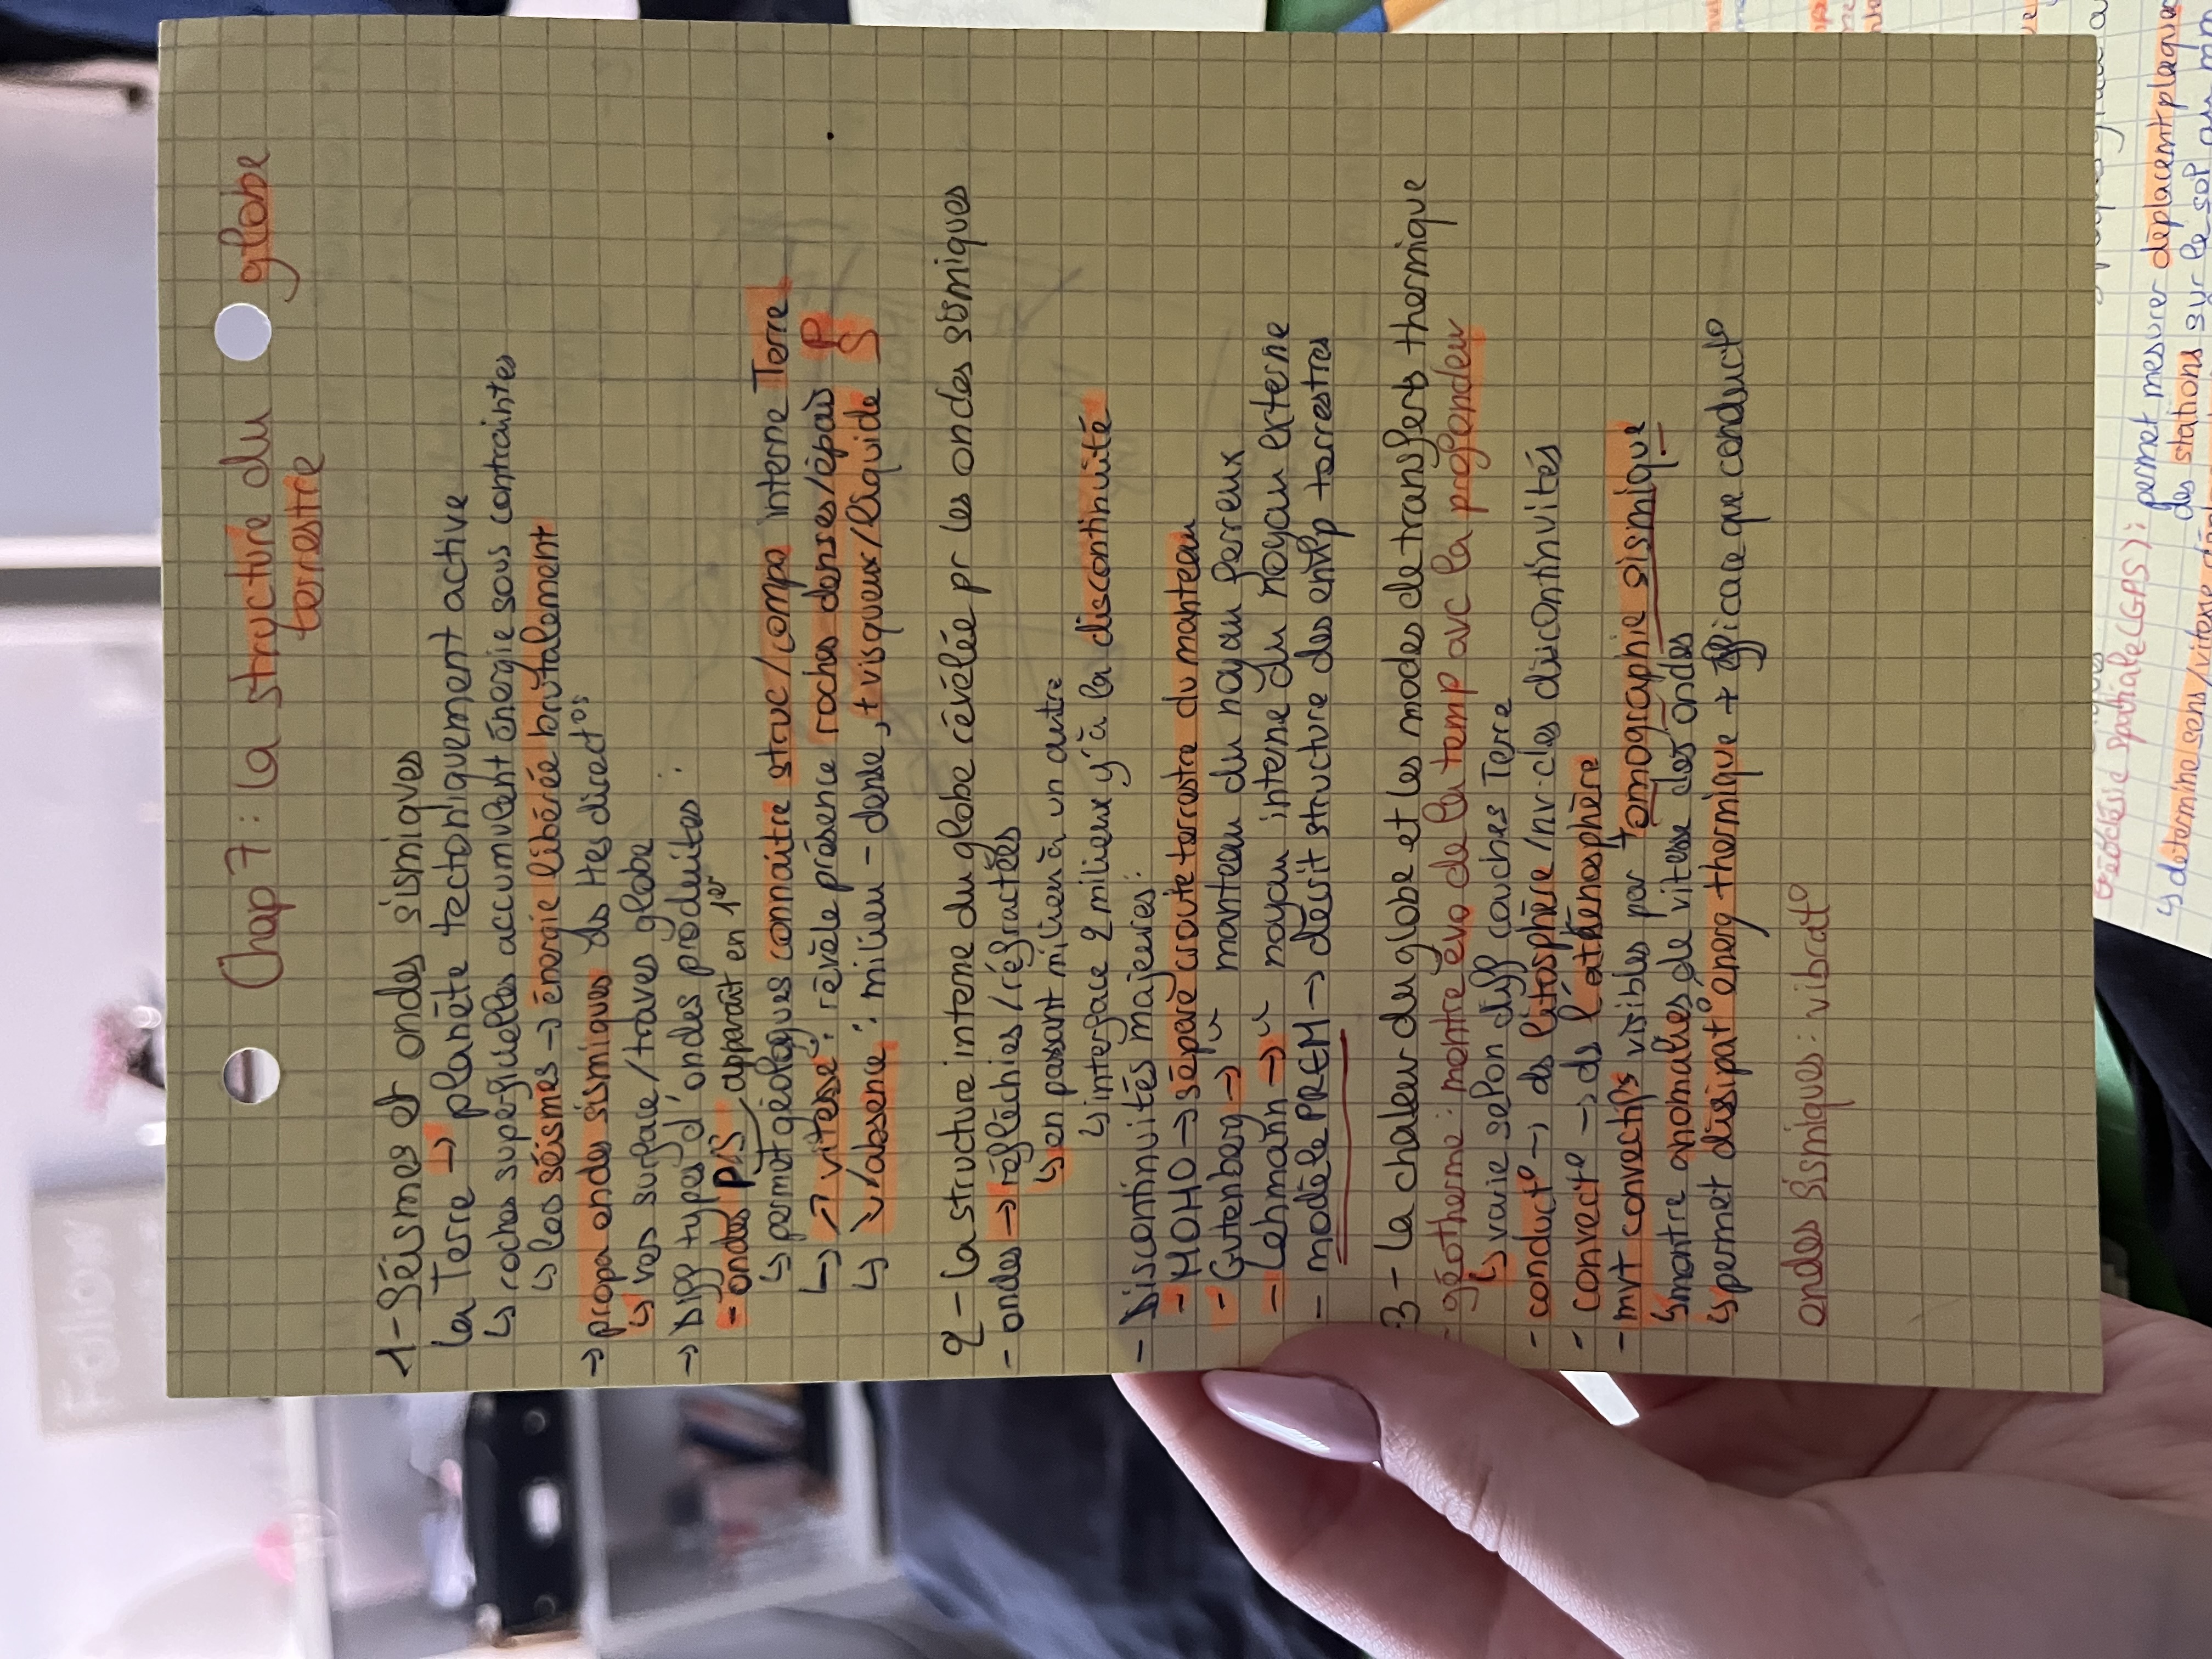 Chap 7 : La structure du globe
terrestre
1 - Séismes et ondes sismiques
La Terre → planète tectoniquement active
↳ roches superficielles accumulent énergie sous contraintes
↳ les séismes → énergie libérée brutalement
→ propa ondes sismiques ds ttes direct°s
↳ vers surface / traves globe
→ Diff types d'ondes produites :
- ondes P/S apparaît en 1er
↳ permet géologues connaître struc/compo interne Terre
↳ ↗ vitesse : révèle présence roches denses/épais P
↳ ↘/absence : milieu - dense, + visqueux/liquide S
2 - La structure interne du globe révélée pr les ondes sismiques
- ondes → réfléchies / réfractées
↳ en passant milieu à un autre
↳ interface 2 milieux y'a la discontinuité
- Discontinuités majeures :
- MOHO → sépare croute terrestre du manteau
- Gutenberg → " manteau du noyau ferreux
- Lehmann → " noyau interne du noyau externe
- modèle PREM → décrit structure des envlp terrestres
3 - La chaleur du globe et les modes de transferts thermique
- géotherme : montre évo de la temp avc la profondeur
↳ varie selon diff couches Terre
- conduct° → ds litosphère / nv. des discontinuités
- convect° → ds l'athénosphère
- mvt convectifs visibles par tomographie sismique
↳ montre anomalies de vitesse des ondes
↳ permet dissipat° énerg thermique + efficace que conduct°
ondes sismiques : vibrat°
Géodésie spatiale (GPS) : permet mesurer déplacemt plaques
des stations sur le sol
↳ determine sens/vitesse
Follow